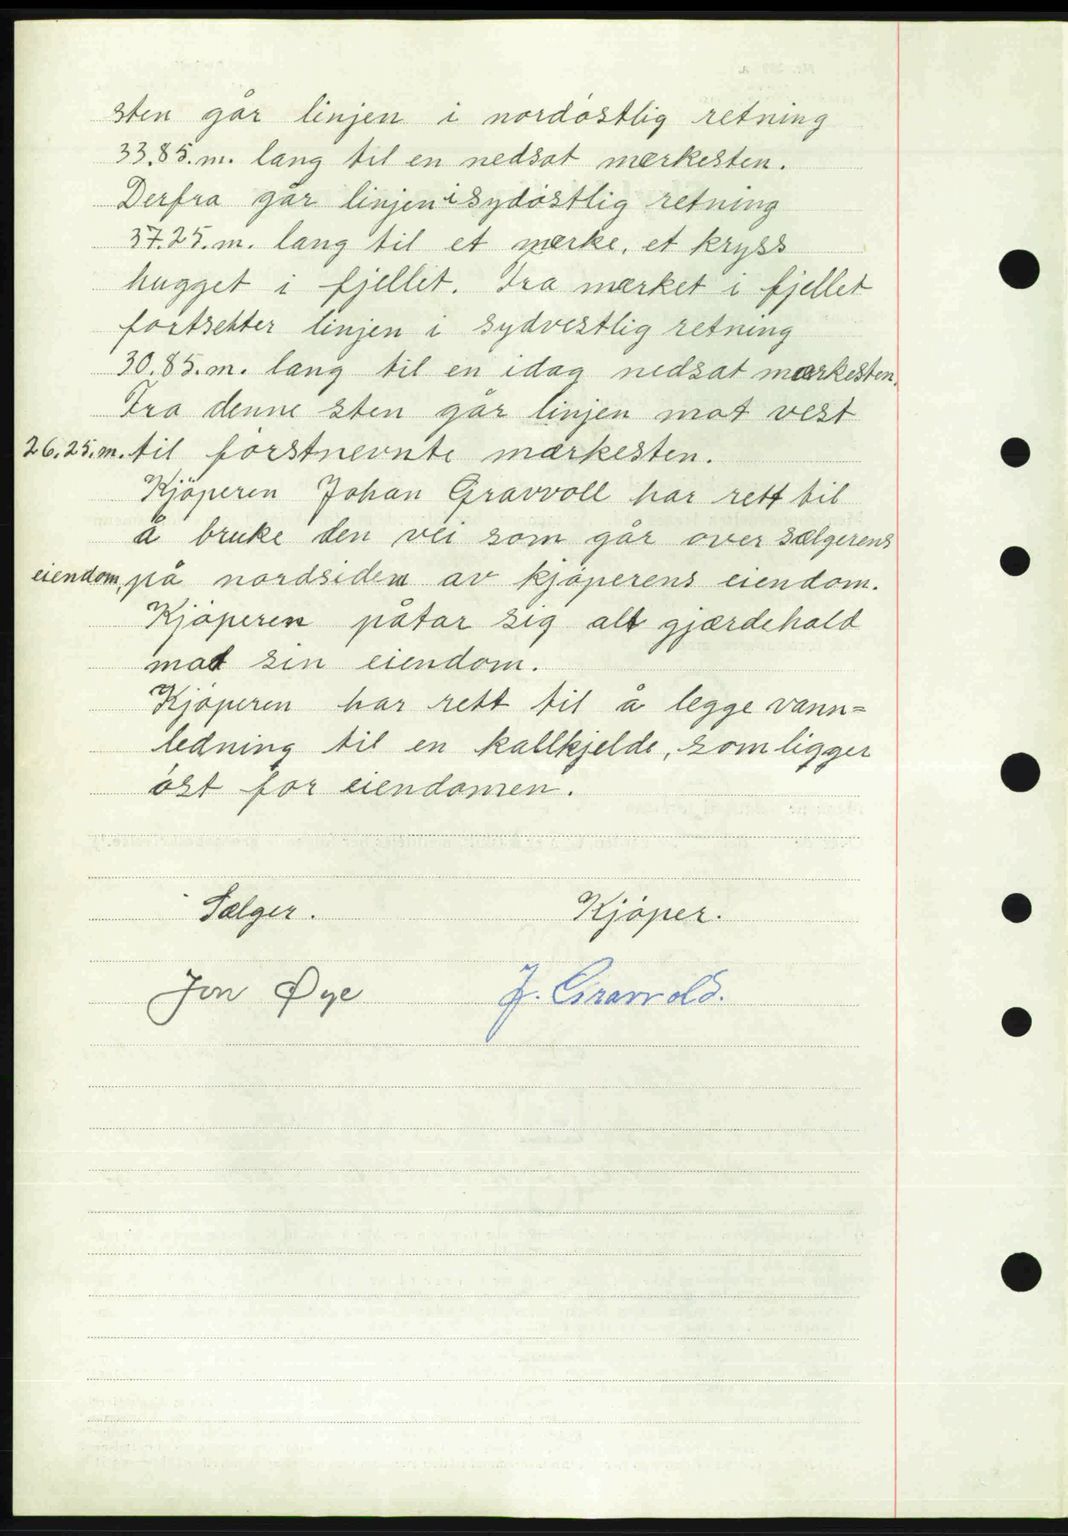 sten går linjen i nordóstlig retning
33.85.m. lang til en nedsat mærkesten.
Derfra går linjen i sydóstlig retning
37.25.m. lang til et mærke, et kryss
hugget i fjellet. Fra mærket i fjellet
fortsetter linjen i sydvestlig retning
30.85.m. lang til en idag nedsat mærkesten.
Fra denne sten går linjen mot vest
26.25.m. til fórstnevnte mærkesten.
Kjöperen Johan Gravvoll har rett til
å bruke den vei som går over sælgerens
eiendom, på nordsiden av kjóperens eiendom.
Kjóperen påtar sig alt gjærdehold
mot sin eiendom.
Kjóperen har rett til å legge vann=
ledning til en kallkjelde, som ligger
óst for eiendomen.
Sælger. Kjóper.
Jon Øye J. Gravvold.